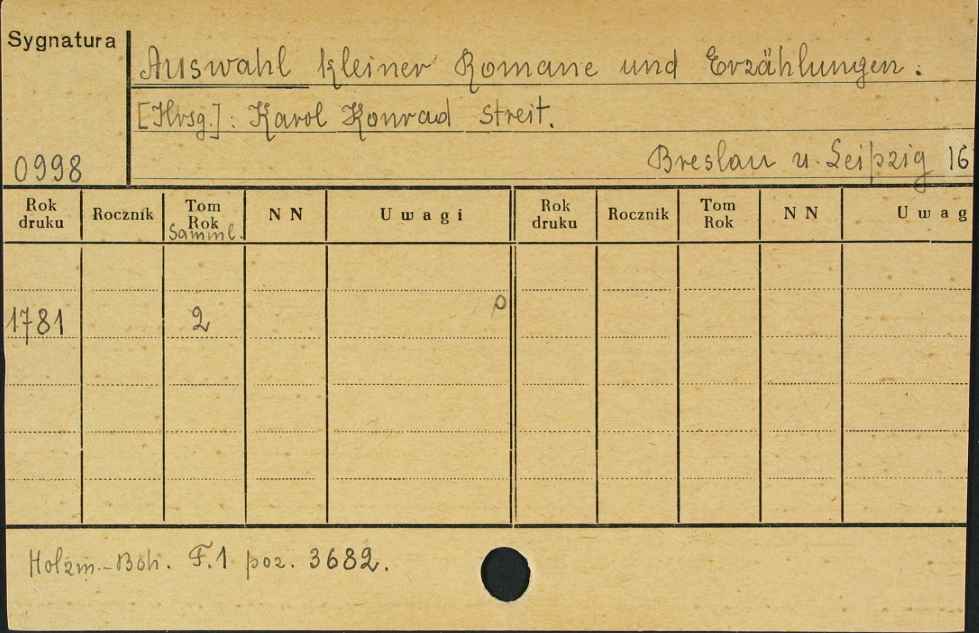 Sygnatura
Auswahl kleiner Romane und Erzählungen.
[Hrsg.]: Karol Konrad Streit.
0998
Breslau u. Leipzig 16
Rok druku Rocznik Tom Rok Samml. NN Uwagi Rok druku Rocznik Tom Rok NN Uwag
1781 2
Holzm.-Boh. F.1 poz. 3682.